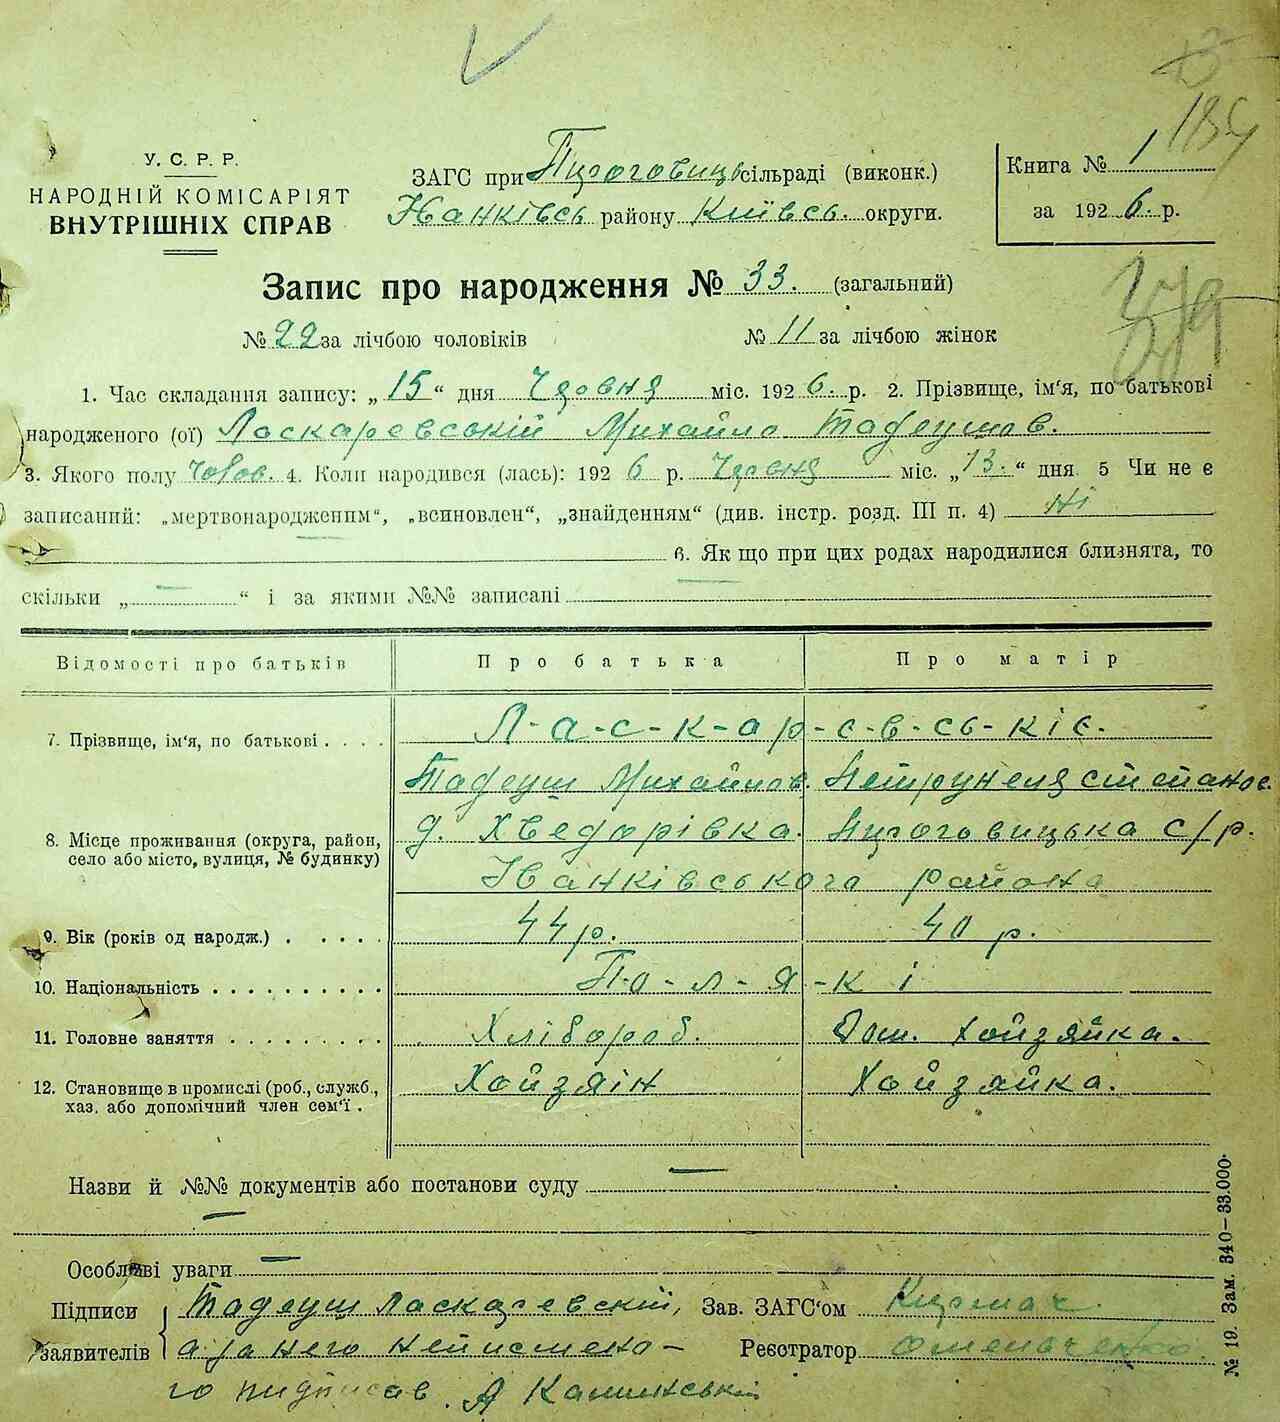 У. С. Р. Р.
НАРОДНІЙ КОМІСАРІЯТ
ВНУТРІШНІХ СПРАВ
ЗАГС при Пироговицьк сільраді (виконк.)
Іванківсь району Київсь. округи.
Книга № 1
за 1926 р.
Запис про народження № 33. (загальний)
№ 22 за лічбою чоловіків № 11 за лічбою жінок
1. Час складання запису: „15“ дня Червня міс. 1926. р. 2. Прізвище, ім'я, по батькові
народженого (ої) Ласкаревській Михайло Тадеушов.
3. Якого полу чолов. 4. Коли народився (лась): 1926 р. Червня міс. „13.“ дня. 5 Чи не є
записаний: „мертвонародженим“, „всиновлен“, „знайденням“ (див. інстр. розд. III п. 4) Ні
6. Як що при цих родах народилися близнята, то
скільки „ — “ і за якими №№ записані —
Відомості про батьків Про батька Про матір
7. Прізвище, ім'я, по батькові . . . . Л-а-с-к-а-р-є-в-сь-кіє.
Тадеуш Михайлов. Петрунеля Степанов.
8. Місце проживання (округа, район, село або місто, вулиця, № будинку) д. Хведорівка. с/р.
Іванківського района
9. Вік (років од народж.) . . . . . 44 р. 40 р.
10. Національність . . . . . . . . . . П-о-л-я-к і
11. Головне заняття . . . . . . . . . Хлібороб. Дом. хойзяйка.
12. Становище в промислі (роб., служб., хаз. або допомічний член сем'ї . Хойзяін Хойзяйка.
Назви й №№ документів або постанови суду —
—
Особливі уваги —
Підписи заявителів Тадеуш Ласкаревскій,
а за него неписмено-
го підписав. А
Зав. ЗАГС'ом
Реєстратор
№ 19. Зам. 340—33.000.